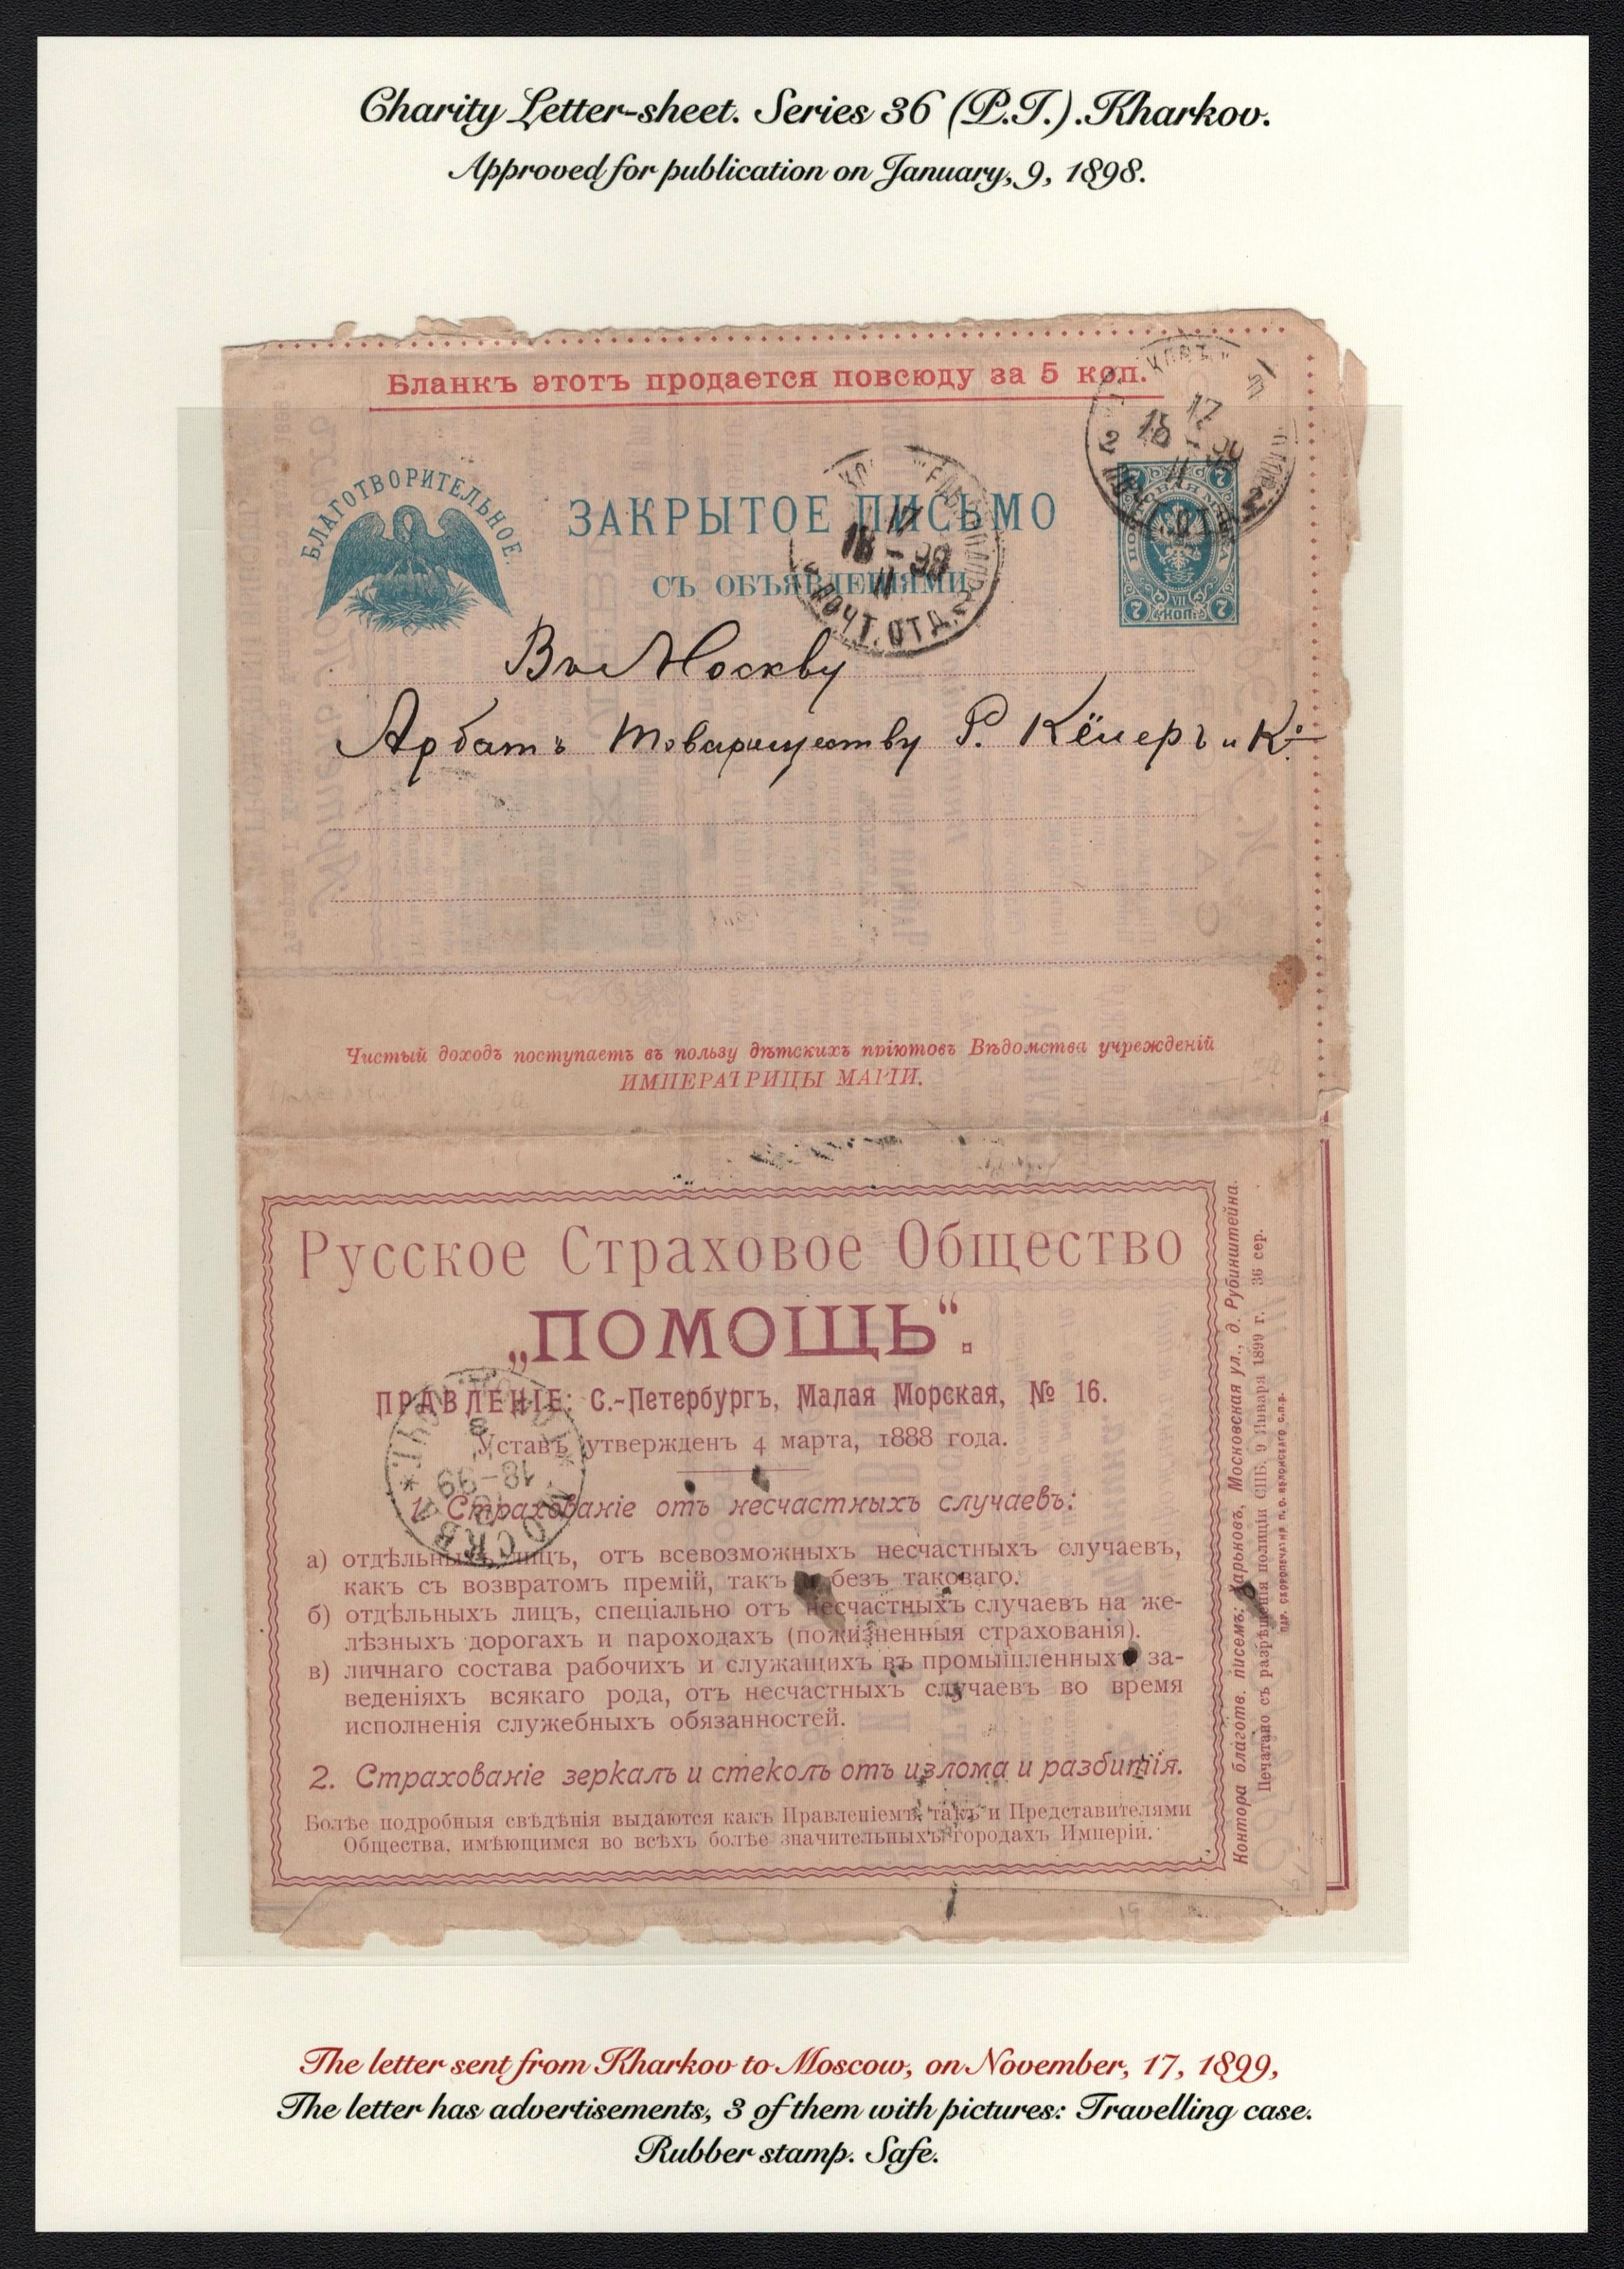 Charity Letter-sheet. Series 36 (P.T.).Kharkov.
Approved for publication on January, 9, 1898.
Бланкъ этотъ продается повсюду за 5 коп.
БЛАГОТВОРИТЕЛЬНОЕ
ЗАКРЫТОЕ ПИСЬМО
СЪ ОБЪЯВЛЕНІЯМИ
ПОЧТОВАЯ МАРКА
7 7
VII
7 КОП. 7
17
18 - 99
11
ПОЧТ. ОТД.
Въ Москву
Арбатъ Товариществу Р. Кёлеръ и Ко
Чистый доходъ поступаетъ въ пользу дѣтскихъ пріютовъ Вѣдомства учрежденій
ИМПЕРАТРИЦЫ МАРІИ.
Русское Страховое Общество
„ПОМОЩЬ“.
ПРАВЛЕНІЕ: С.-Петербургъ, Малая Морская, № 16.
Уставъ утвержденъ 4 марта, 1888 года.
1. Страхованіе отъ несчастныхъ случаевъ:
а) отдѣльныхъ лицъ, отъ всевозможныхъ несчастныхъ случаевъ,
какъ съ возвратомъ премій, такъ и безъ таковаго.
б) отдѣльныхъ лицъ, спеціально отъ несчастныхъ случаевъ на же-
лѣзныхъ дорогахъ и пароходахъ (пожизненныя страхованія).
в) личнаго состава рабочихъ и служащихъ въ промышленныхъ за-
веденіяхъ всякаго рода, отъ несчастныхъ случаевъ во время
исполненія служебныхъ обязанностей.
2. Страхованіе зеркалъ и стеколъ отъ излома и разбитія.
Болѣе подробныя свѣдѣнія выдаются какъ Правленіемъ, такъ и Представителями
Общества, имѣющимся во всѣхъ болѣе значительныхъ городахъ Имперіи.
МОСКВА
18-99
Контора благотв. писемъ: Харьковъ, Московская ул., д. Рубинштейна.
Печатано съ разрѣшенія полиціи СПБ. 9 Января 1899 г. 36 сер.
ПАР. СКОРОПЕЧАТНЯ П. О. ЯБЛОНСКАГО С.П.Б.
The letter sent from Kharkov to Moscow, on November, 17, 1899,
The letter has advertisements, 3 of them with pictures: Travelling case.
Rubber stamp. Safe.